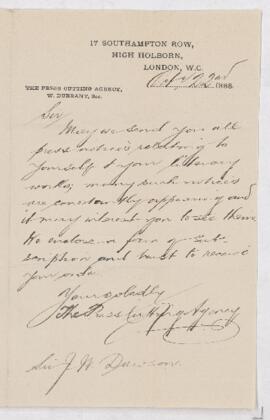 17 SOUTHAMPTON ROW,
HIGH HOLBORN,
LONDON, W.C.
22nd 1888
THE PRESS CUTTING AGENCY,
W. DURRANT, Sec.
Sir
May we send you all
press notices relating to
yourself & your literary
works; many such notices
are constantly appearing and
it may interest you to see them.
We enclose a form of sub-
scription and trust to receive
your order.
Yours
The Press Cutting Agency
Sir J. W. Dawson.